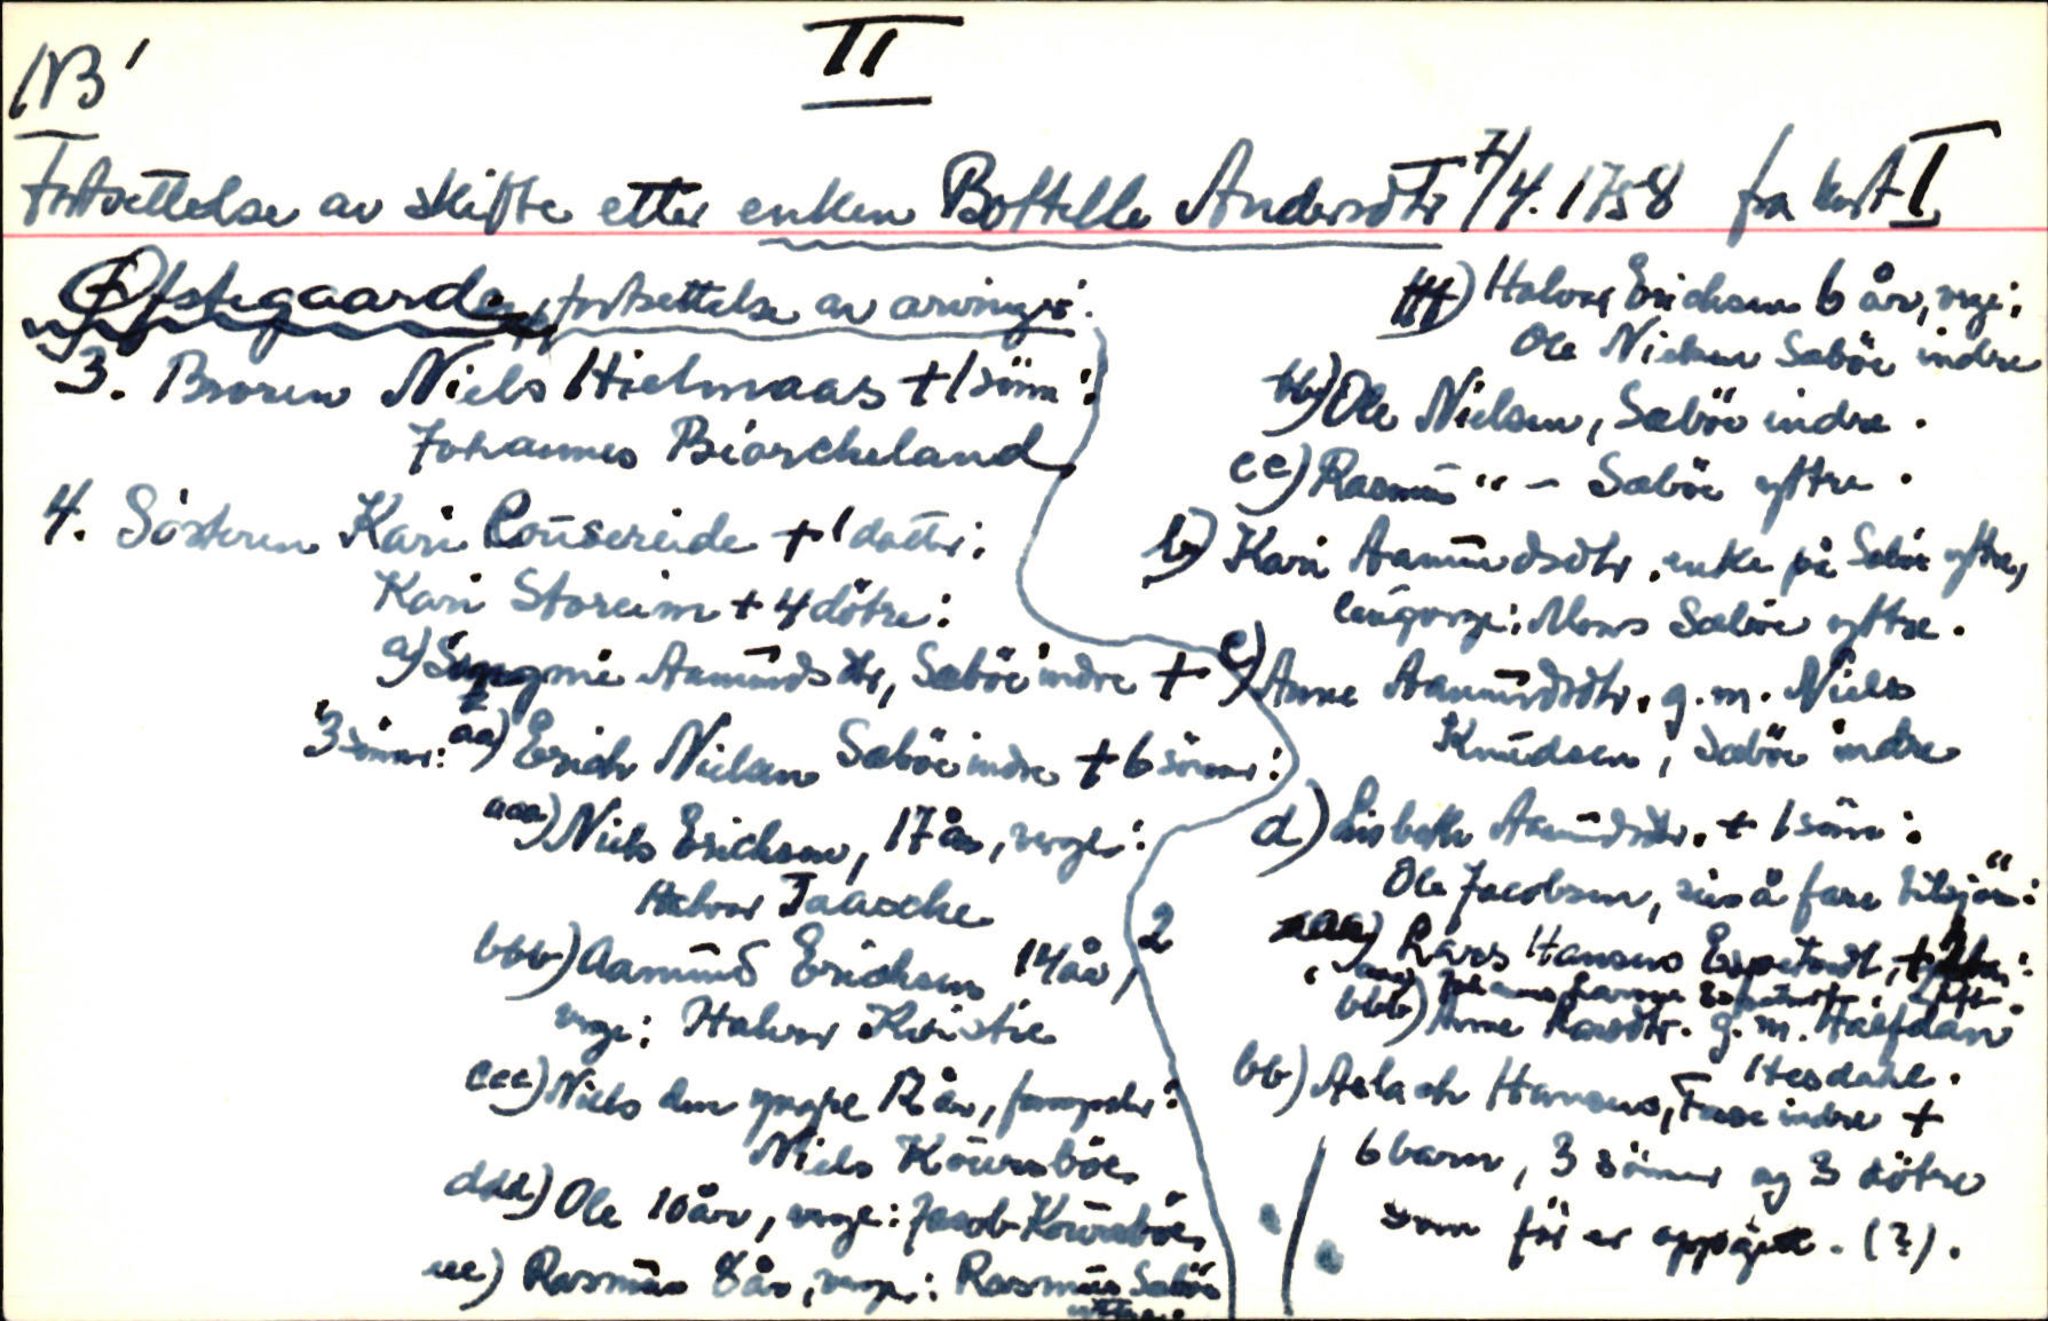 II
NB!
Fortsettelse av skifte etter enken Bottelle Andersdtr 7/4.1758 fra kort I
Øfstegaarde, fortsettelse av arvinger:
3. Broren Niels Hielmaas + 1 sönn:
Johannes Biørckeland
4. Sösteren Kari Rousereide + 1 datter:
Kari Storeim + 4 dötre:
a) Aamundsdtr, Saböe indre +
3 sönner: aa) Erich Nielsen Saböe indre + 6 sönner:
aaa) Niels Erichsen, 17 år, verge:
Halvor Taasche
bbb) Aamund Erichsen 14 år,
verge: Halvor Kristie
ccc) Niels den yngre 12 år, :
Niels Koursböe
ddd) Ole 10 år, verge: Jacob Koursböe,
eee) Rasmus 8 år, verge: Rasmus Saböe
yttre.
2
fff) Halvor Erichsen 6 år, verge:
Ole Nielsen Saböe indre
bb) Ole Nielsen, Saböe indre.
cc) Rasmus " - Saböe yttre.
b) Kari Aamundsdtr. enke på Saböe yttre,
laugverge: Mons Saböe yttre.
c) Anne Aamundsdtr. g.m. Niels
Knudsen, Saböe indre
d) Lisbeth Aamundsdtr. + 1 sönn:
Ole Jacobsen, å fare tilsjös:
aa) Lars Hansens Espetvedt, +
bbb) Anne Larsdtr. g.m. Halfdan
Hesdahl.
bb) Aslach Hansens, Fase indre +
6 barn, 3 sönner og 3 dötre
som för er oppgitt. (?).